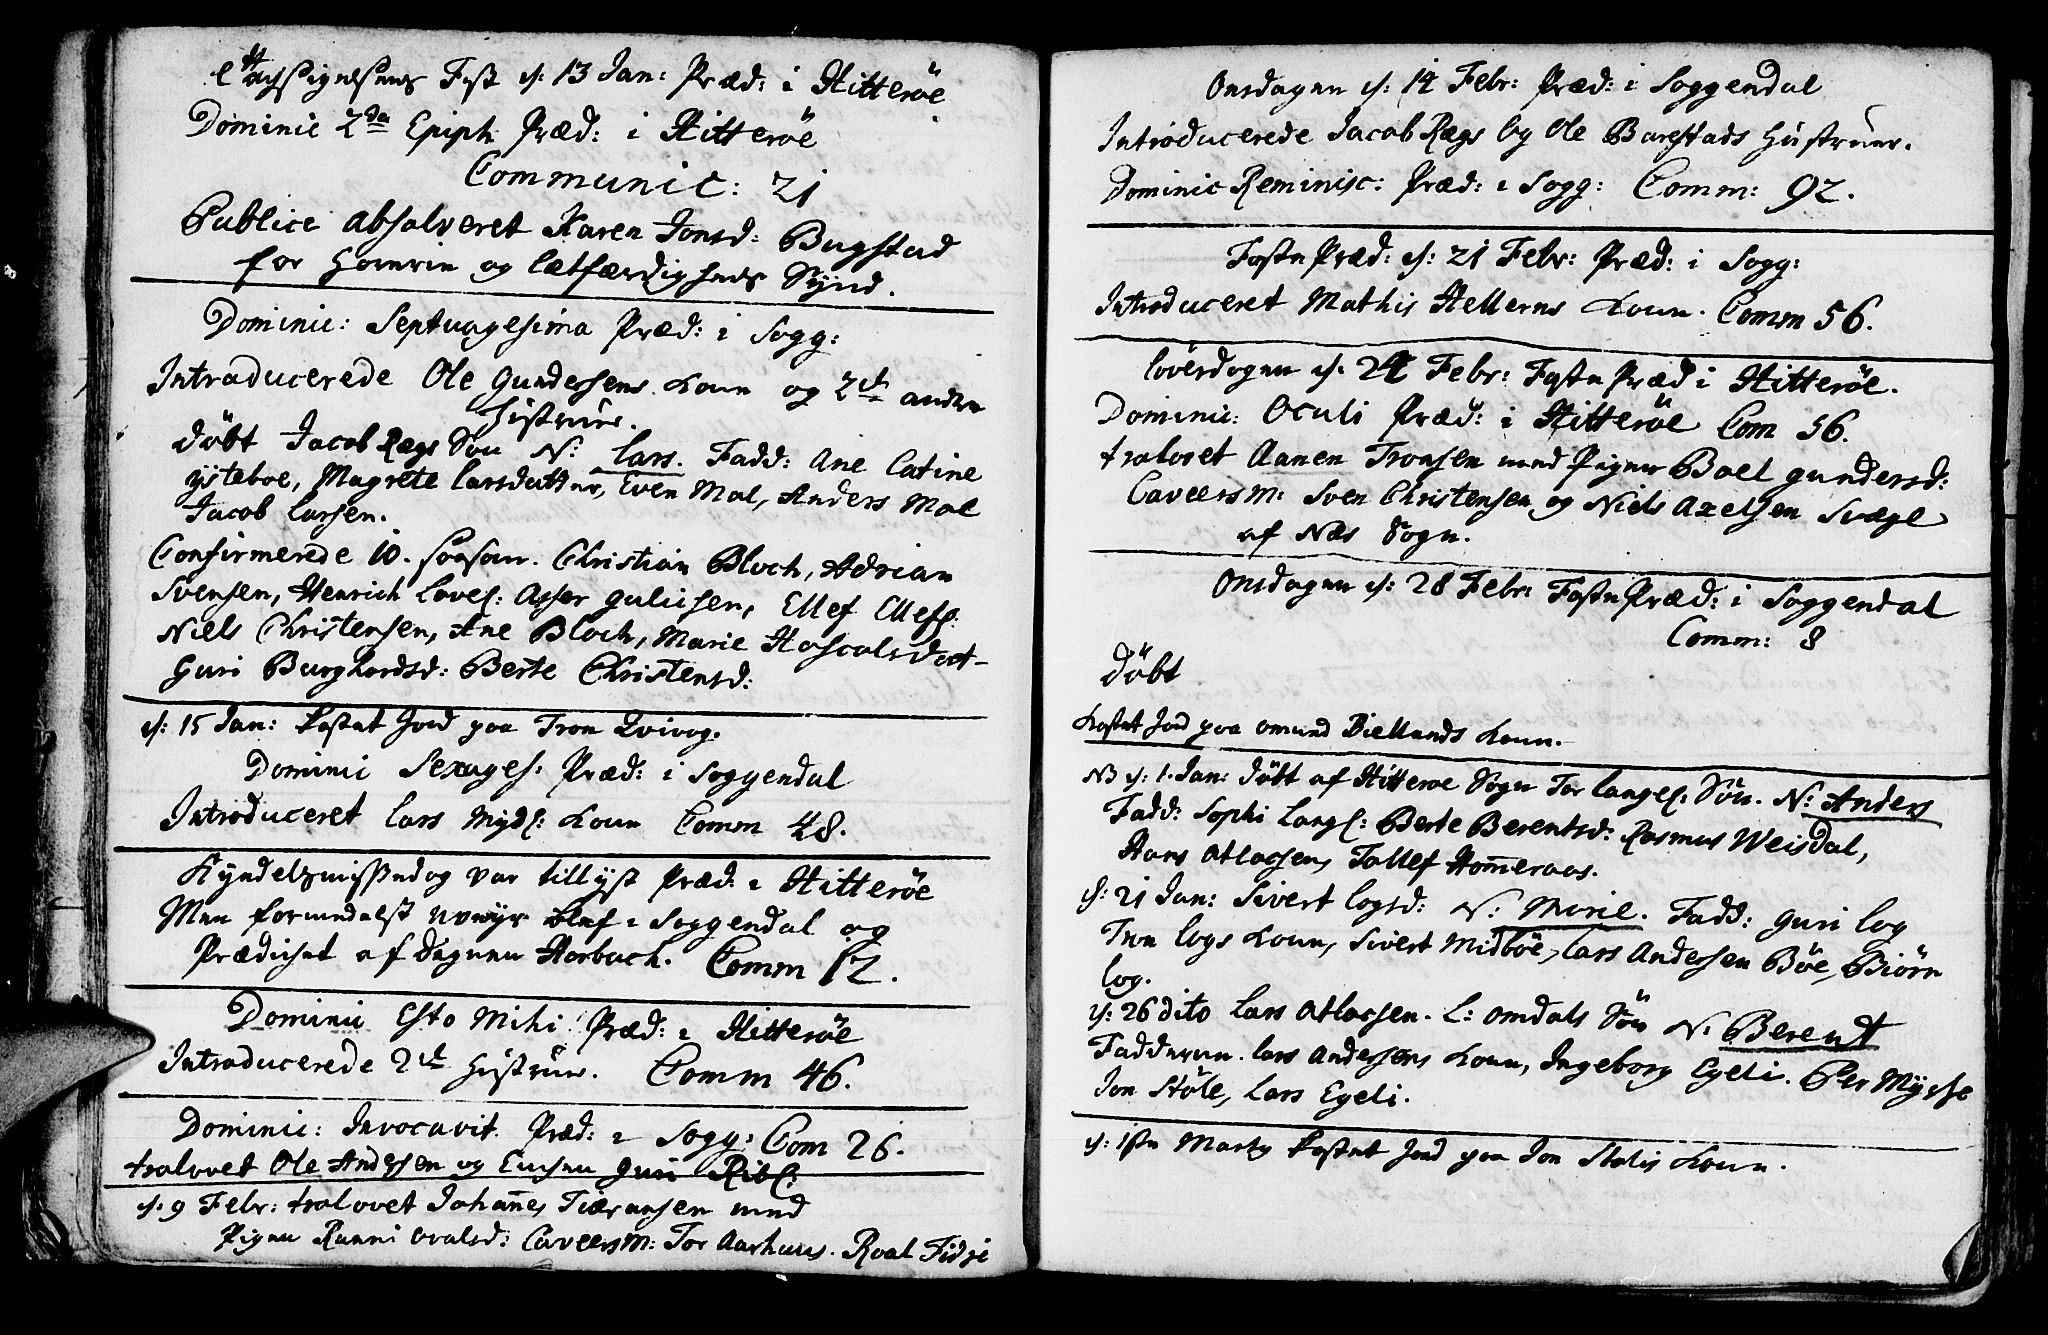 Tachsigelsens Fest d: 13 Jan: Præd: i Hitterøe
Dominic 2da Epiph. Præd: i Hitterøe
Communic: 21
Publice absolveret Karen Jonsd: Bugstad
for Horerie og lætfærdigheds Synd.
Dominic: Septuagesima Præd: i Sogg:
Introducerede Ole Gundersens Kone og 2de andre
Hustruer.
døbt Jacob Rægs Søn N: Lars. Fadd: Ane Catine
ysteboe, Magrete Larsdatter, Even Mol, Anders Mol
Jacob Larsen.
Confirmerede 10. Personer. Christian Bloch, Adrian
Svensen, Henrich Loves: Asser gulusen, Ellef Ellefs:
Niels Christensen, Ane Bloch, Marie Hascalsdat-
Guri Burghardsd: Berte Christensd:
d: 15 Jan: Kastet Jord paa Tron Qvivog.
Dominic Sexages: Præd: i Soggendal
Introduceret Lars Myds: Kone Comm 48.
Kyndelsmissedag var tillyst Præd: i Hitterøe
Men formedelst blef i Soggendal og
Prædiket af Degnen Harbach. Comm 12.
Dominic Esto Mihi Præd: i Hitterøe
Introducerede 2de Hustruer. Comm 46.
Dominic: Invocavit. Præd: i Sogg: Com 26.
trolovet Ole Andersen og Enken Guri Ribs:
d: 9 Febr: trolovet Johannes Tiøransen med
Pigen Ranni Oralsd: Caveers M: Tor Aarhuus. Roal Fidje
Onsdagen d: 14 Febr: Præd: i Soggendal
Introducerede Jacob Rægs og Ole Barstads Hustruer.
Dominic Reminisc: Præd: i Sogg: Comm: 92.
Faste Præd: d: 21 Febr: Præd: i Sogg:
Introduceret Mathis Hellerns Kone. Comm 56.
Løverdagen d. 24 Febr: Faste Præd i Hitterøe.
Dominic: Oculi Præd: i Hitterøe Com 56.
trolovet Aanen Tronsen med Pigen Boel gundersd:
Caveers M: Sven Christensen og Niels Axelsen Svege
af Næs Sogn.
Onsdagen d: 28 Febr: Faste Præd: i Soggendal
Comm: 8
døbt
Kastet Jord paa Omund Biellands Kone.
NB d: 1. Jan: døbt af Hitterøe Sogn Tor Langes: Søn. N: Anders
Fadd: Sophi Langs: Berte Berentsd: Rasmus Weisdal,
Hans Atlassen, Tollef Hommeraas.
d: 21 Jan: Sivert Logsd: N: Marie. Fadd: Guri Log
Tron Logs Kone, Sivert Midbøe, Lars Andersen Bøe, Biørn
Log.
d: 26 dito Lars Atlassen. L: omdals Søn N: Berent
Fadderne. Lars Andersens Kone, Ingeborg Egeli. Per Mysse
Jon Støle, Lars Egeli.
d: 1ste Marty Kastet Jord paa Jon Stolis Kone.